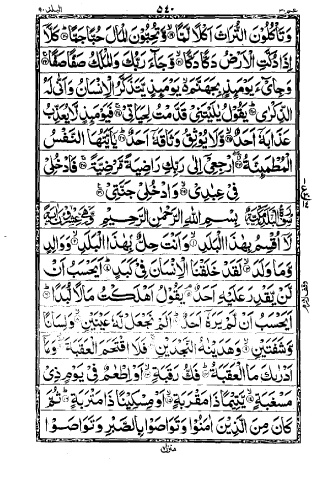 عم ٣٠ ٥٤٠ البلد ٩٠
وَتَأْكُلُونَ التُّرَاثَ أَكْلًا لَّمًّا ۝ وَّتُحِبُّونَ الْمَالَ حُبًّا جَمًّا ۝ كَلَّآ
اِذَا دُكَّتِ الْاَرْضُ دَكًّا دَكًّا ۝ وَّجَآءَ رَبُّكَ وَالْمَلَكُ صَفًّا صَفًّا ۝
وَجِايْٓءَ يَوْمَئِذٍۭ بِجَهَنَّمَ ۙ يَوْمَئِذٍ يَّتَذَكَّرُ الْاِنْسَانُ وَاَنّٰى لَهُ
الذِّكْرٰى ۝ يَقُوْلُ يٰلَيْتَنِيْ قَدَّمْتُ لِحَيَاتِيْ ۝ فَيَوْمَئِذٍ لَّا يُعَذِّبُ
عَذَابَهٗٓ اَحَدٌ ۝ وَّلَا يُوْثِقُ وَثَاقَهٗٓ اَحَدٌ ۝ يٰٓاَيَّتُهَا النَّفْسُ
الْمُطْمَئِنَّةُ ۝ ارْجِعِيْٓ اِلٰى رَبِّكِ رَاضِيَةً مَّرْضِيَّةً ۝ فَادْخُلِيْ
فِيْ عِبٰدِيْ ۝ وَادْخُلِيْ جَنَّتِيْ ۝
بِسْمِ اللّٰهِ الرَّحْمٰنِ الرَّحِيْمِ
لَآ اُقْسِمُ بِهٰذَا الْبَلَدِ ۝ وَاَنْتَ حِلٌّۢ بِهٰذَا الْبَلَدِ ۝ وَوَالِدٍ
وَّمَا وَلَدَ ۝ لَقَدْ خَلَقْنَا الْاِنْسَانَ فِيْ كَبَدٍ ۝ اَيَحْسَبُ اَنْ
لَّنْ يَّقْدِرَ عَلَيْهِ اَحَدٌ ۝ يَقُوْلُ اَهْلَكْتُ مَالًا لُّبَدًا ۝
اَيَحْسَبُ اَنْ لَّمْ يَرَهٗٓ اَحَدٌ ۝ اَلَمْ نَجْعَلْ لَّهٗ عَيْنَيْنِ ۝ وَلِسَانًا
وَّشَفَتَيْنِ ۝ وَهَدَيْنٰهُ النَّجْدَيْنِ ۝ فَلَا اقْتَحَمَ الْعَقَبَةَ ۝ وَمَآ
اَدْرٰىكَ مَا الْعَقَبَةُ ۝ فَكُّ رَقَبَةٍ ۝ اَوْ اِطْعٰمٌ فِيْ يَوْمٍ ذِيْ
مَسْغَبَةٍ ۝ يَّتِيْمًا ذَا مَقْرَبَةٍ ۝ اَوْ مِسْكِيْنًا ذَا مَتْرَبَةٍ ۝ ثُمَّ
كَانَ مِنَ الَّذِيْنَ اٰمَنُوْا وَتَوَاصَوْا بِالصَّبْرِ وَتَوَاصَوْا